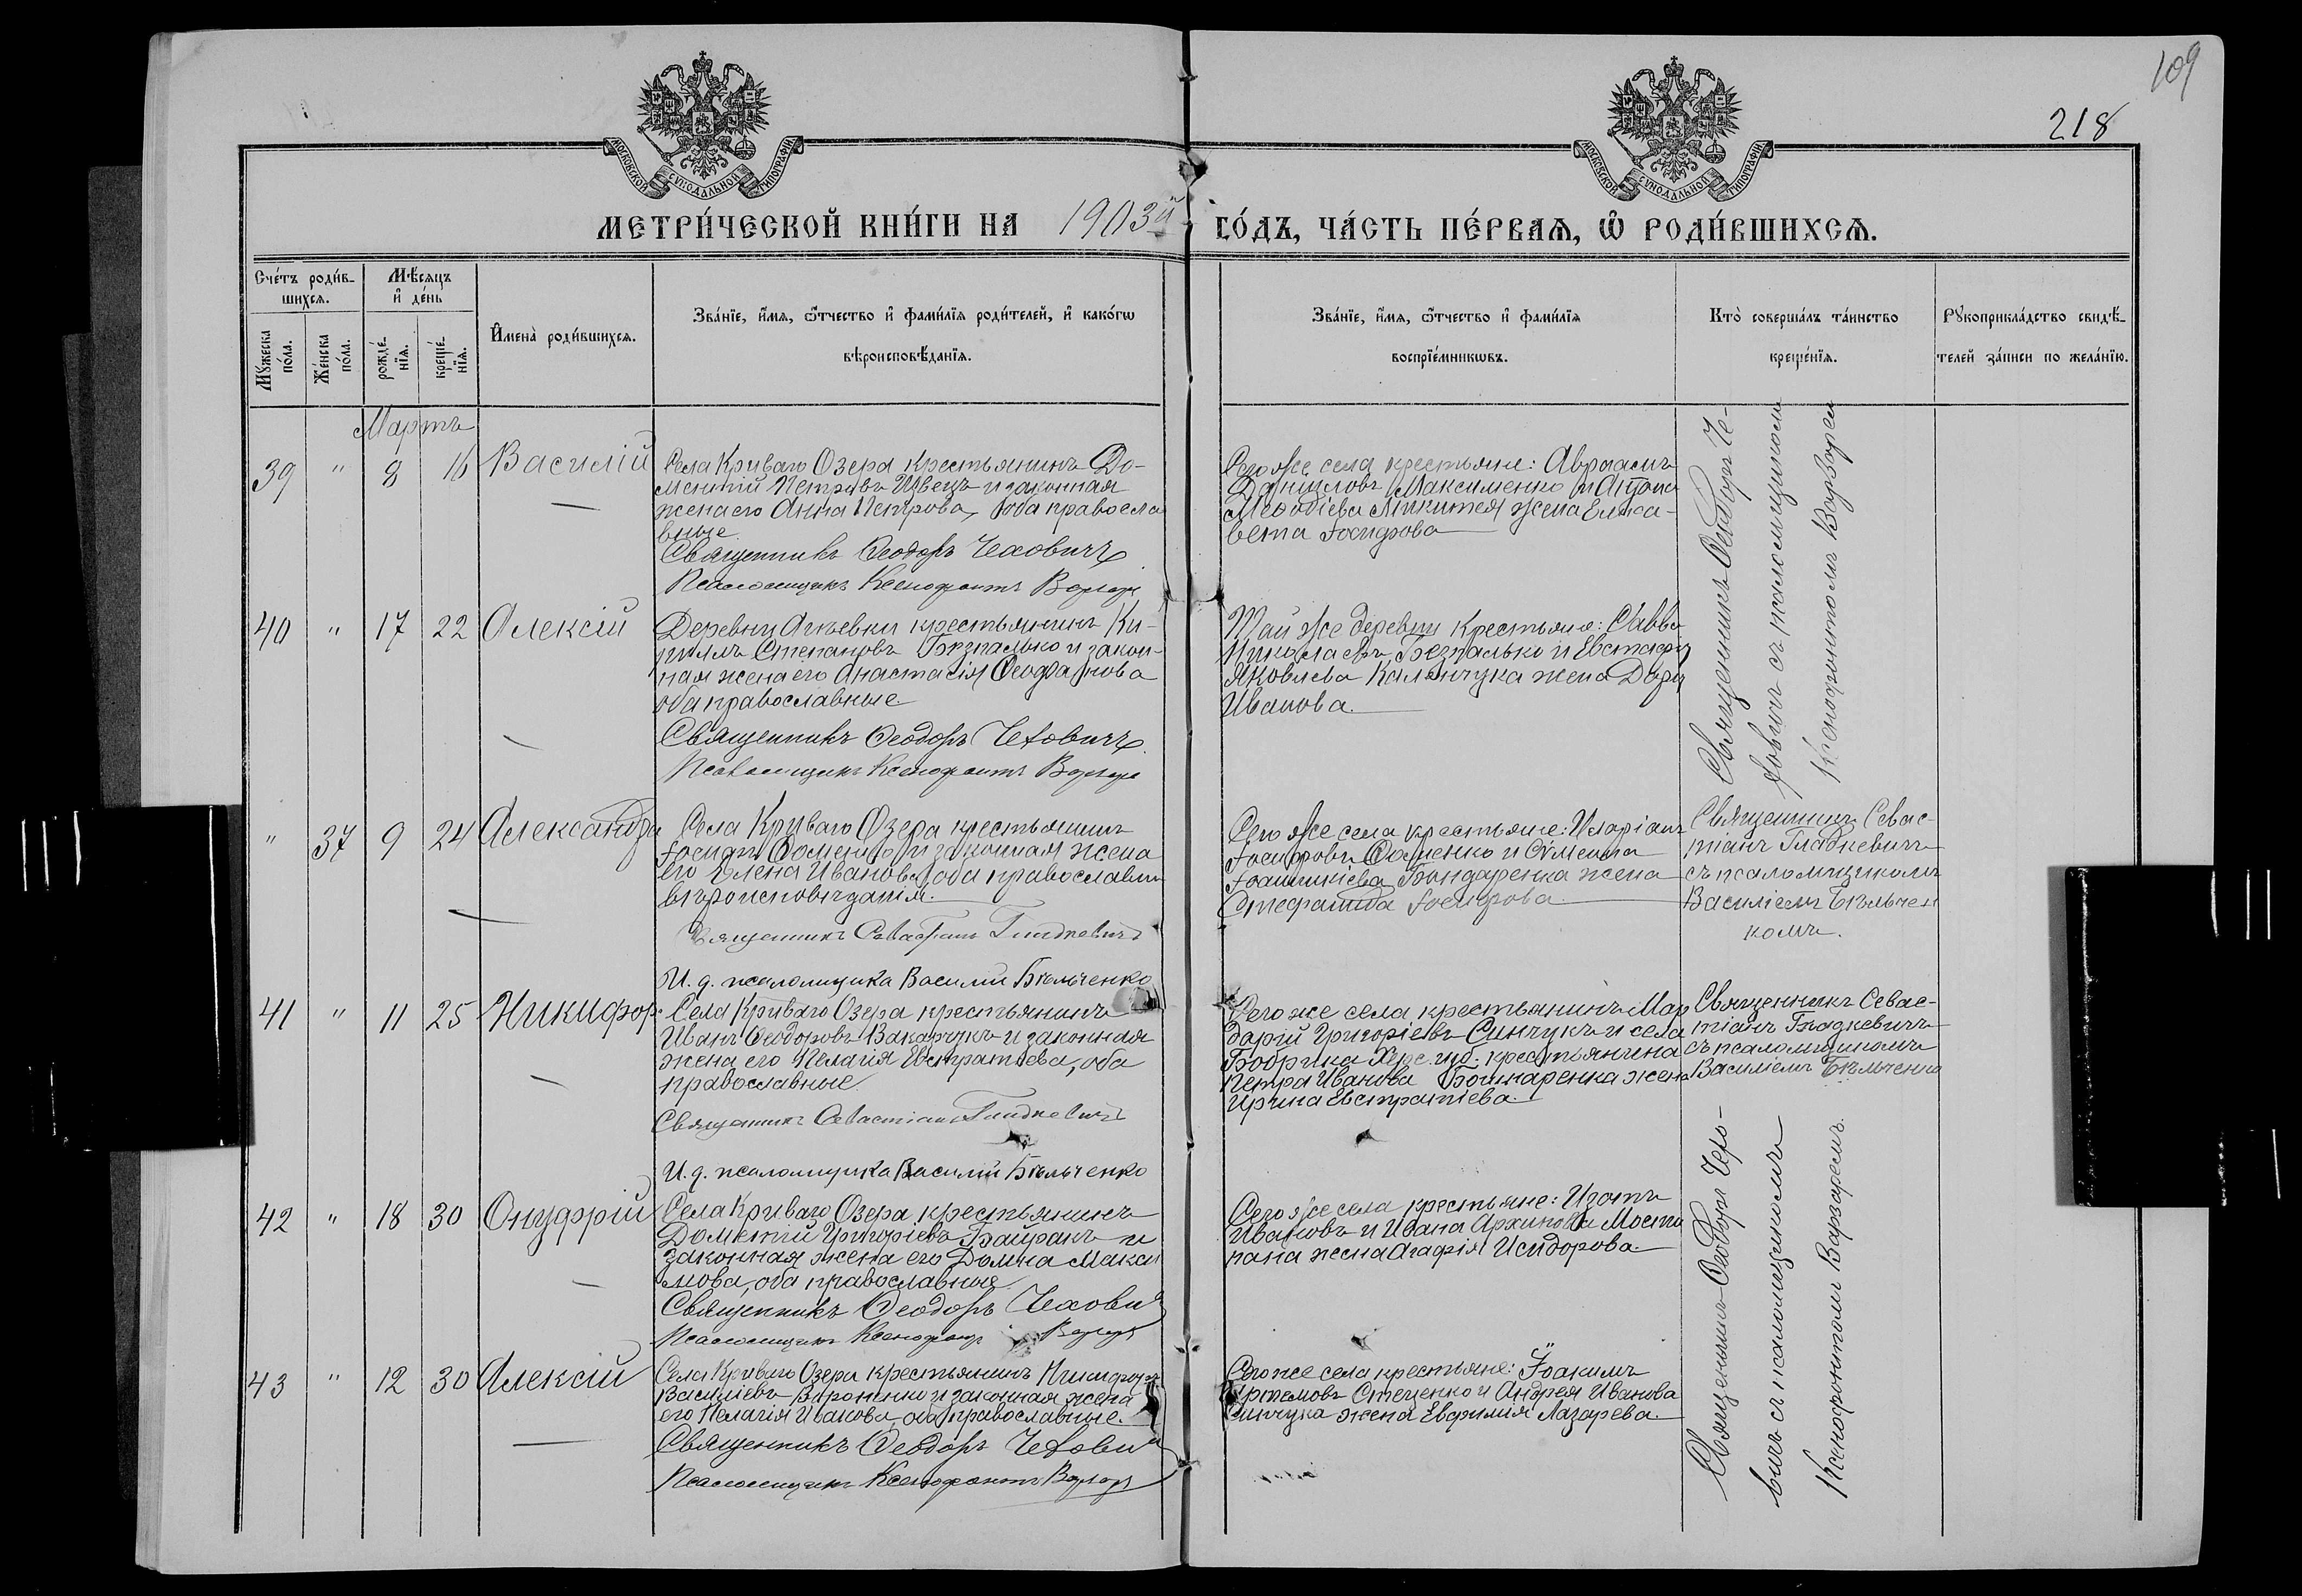 109
218
МОСКОВСКОЙ СѴНОДАЛЬНОЙ ТИПОГРАФІИ
МОСКОВСКОЙ СѴНОДАЛЬНОЙ ТИПОГРАФІИ
МЕТРИ́ЧЕСКОЙ КНИ́ГИ НА 1903й ГО́ДЪ, ЧА́СТЬ ПЕ́РВАѦ, Ѽ РОДИ́ВШИХСѦ.
Сче́тъ роди́в-
шихсѧ.
Мѣ́сѧцъ
и҆ де́нь
Мꙋ́жеска
по́ла.
Же́нска
по́ла.
рожде́-
нїѧ.
креще́-
нїѧ.
И҆мена̀ роди́вшихсѧ.
Зва́нїе, и҆́мѧ, ѻ҆́тчество и҆ фами́лїѧ роди́телей, и҆ како́гѡ
вѣроисповѣ́данїѧ.
Зва́нїе, и҆́мѧ, ѻ҆́тчество и҆ фами́лїѧ
воспрїе́мникѡвъ.
Кто̀ соверша́лъ та́инство
креще́нїѧ.
Рꙋкоприкла́дство свидѣ́-
телей за́писи по жела́нїю.
Мартъ
39 " 8 16 Василій
Села Криваго Озера крестьянинъ До-
ментій Петровъ Швецъ и законная
жена его Анна Петрова, оба правосла
вные
Священникъ Ѳеодоръ Чеховичъ
Псаломщикъ Ксенофонтъ
Сего же села крестьяне: Авраамъ
Данииловъ Максименко и
Меѳодіева жена Елиса-
вета Іосифова
Священникъ Ѳеодоръ Че-
ховичъ съ псаломщикомъ
Ксенофонтомъ
40 " 17 22 Алексій
Деревни крестьянинъ Ки-
риллъ Степановъ Безпалько и закон-
ная жена его Анастасія Ѳеофанова
оба православные
Священникъ Ѳеодоръ Чеховичъ
Псаломщикъ Ксенофонтъ
Той же деревни крестьяне: Савва
Николаевъ Безпалько и Евстафія
Яковлева Каленчука жена Дарія
Иванова.
" 37 9 24 Александра
Села Криваго Озера крестьянинъ
Іосифъ Ѳоменко и законная жена
его Елена Иванова, оба православнаго
вѣроисповѣданія.
Священникъ Севастіанъ Гладкевичъ
И. д. псаломщика Василій Бѣльченко
Сего же села крестьяне: Иларіонъ
Іосифовъ Ѳоменко и Сѵмеона
Іоанникіева Бондаренка жена
Стефанида Іосифова.
Священникъ Севас-
тіанъ Гладкевичъ
съ псаломщикомъ
Василіемъ Бѣльчен
комъ.
41 " 11 25 Никифоръ
Села Криваго Озера крестьянинъ
Иванъ Ѳеодоровъ Вакарчукъ и законная
жена его Пелагія Евстратіева, оба
православные
Священникъ Севастіанъ Гладкевичъ
И. д. псаломщика Василій Бѣльченко
Сего же села крестьянинъ Мар
дарій Григоріевъ Синчукъ и села
Бобрика Херс. губ. крестьянина
Петра Иванова жена
Ирина Евстратіева.
Священникъ Севас-
тіанъ Гладкевичъ
съ псаломщикомъ
Василіемъ Бѣльченко
42 " 18 30 Онуфрій
Села Криваго Озера крестьянинъ
Дометій Григоріевъ Байракъ и
законная жена его Домна Макси
мова, оба православные
Священникъ Ѳеодоръ Чехович
Псаломщикъ Ксенофонтъ
Сего же села крестьяне: Изотъ
Ивановъ и Ивана Архипова Мости
пана жена Агафія Исидорова.
Священникъ Ѳеодоръ Чехо-
вичъ съ псаломщикомъ
Ксенофонтомъ
43 " 12 30 Алексій
Села Криваго Озера крестьянинъ Никифоръ
Василіевъ Вороненко и законная жена
его Пелагія Иванова, оба православные.
Священникъ Ѳеодоръ Чехович
Псаломщикъ Ксенофонтъ
Сего же села крестьяне: Іоакимъ
Артемовъ Стеценко и Андрея Иванова
Синчука жена Евфимія Лазарева.